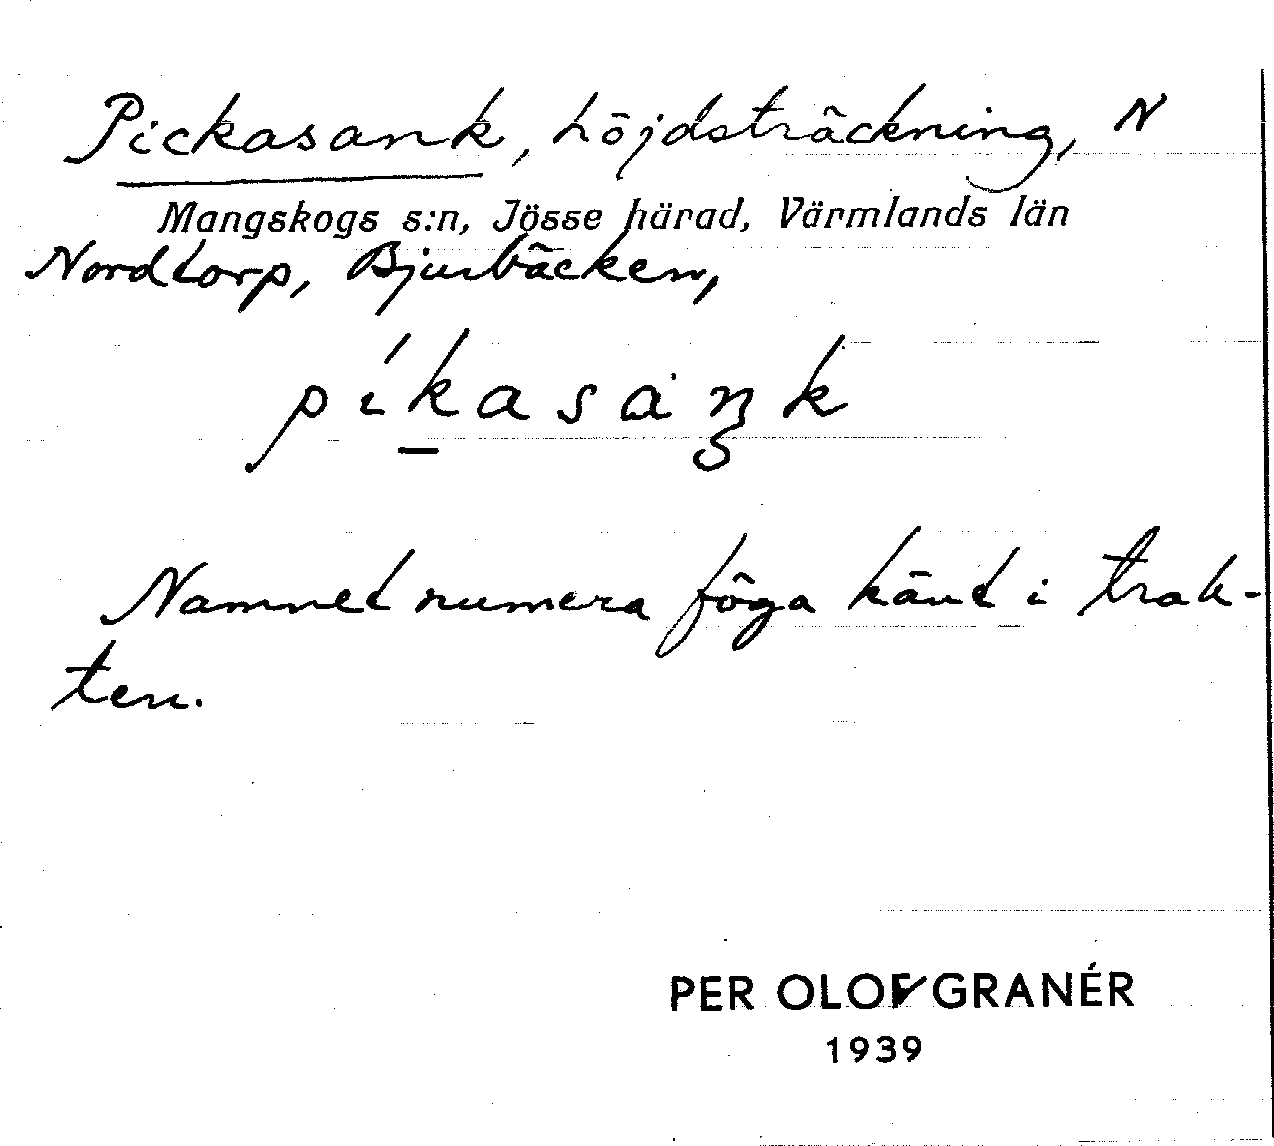 Pickasank, höjdsträckning, N
Mangskogs s:n, Jösse härad, Värmlands län
Nordtorp, Bjurbäcken,
píkasaŋk
Namnet numera föga känt i trak-
ten.
PER OLOF GRANÉR
1939